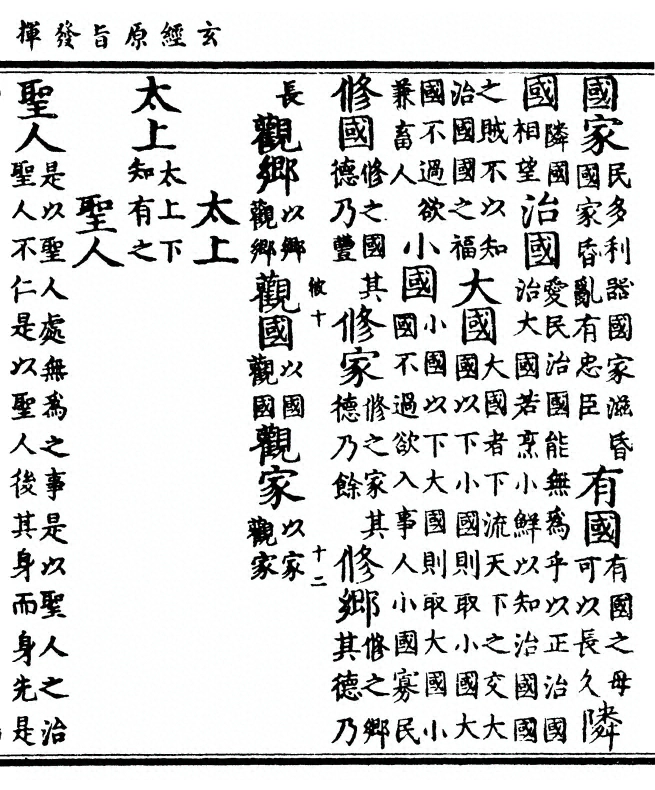 玄經原旨發揮
國家民多利器國家滋昏國家昏亂有忠臣有國有國之母可以長久隣
國隣國相望治國愛民治國能無爲乎以正治國治大國若烹小鮮以知治國國
之賊不以知治國國之福大國大國者下流天下之交大國以下小國則取小國大
國不過欲兼畜人小國小國以下大國則取大國小國不過欲入事人小國寡民
修國修之國其德乃豐修家修之家其德乃餘修鄉修之鄉其德乃
十
十二
長觀鄉以鄉觀鄉觀國以國觀國觀家以家觀家
太上
太上太上下知有之
聖人
聖人是以聖人處無爲之事是以聖人之治聖人不仁是以聖人後其身而身先是